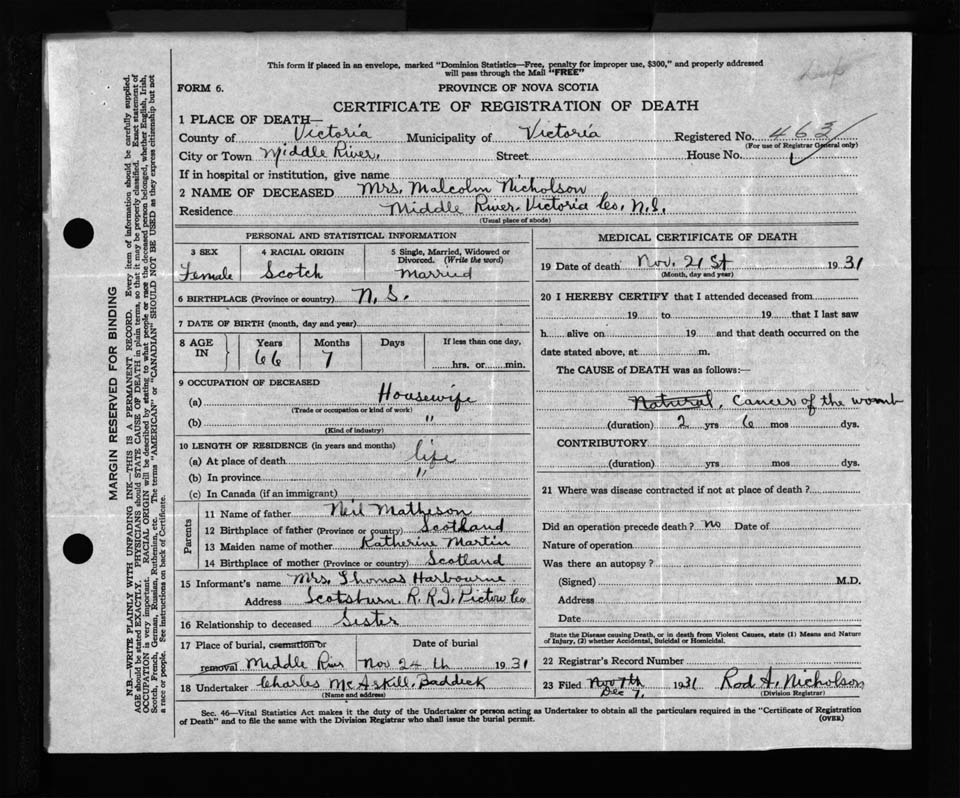 This form if placed in an envelope, marked "Dominion Statistics—Free, penalty for improper use, $300," and properly addressed
will pass through the Mail "FREE"
FORM 6.
PROVINCE OF NOVA SCOTIA
CERTIFICATE OF REGISTRATION OF DEATH
1 PLACE OF DEATH—
County of Victoria Municipality of Victoria Registered No. 463
(For use of Registrar General only)
City or Town Middle River, Street House No.
If in hospital or institution, give name
2 NAME OF DECEASED Mrs. Malcolm Nicholson
Residence Middle River, Victoria Co. N.S.
(Usual place of abode)
PERSONAL AND STATISTICAL INFORMATION
3 SEX 4 RACIAL ORIGIN 5 Single, Married, Widowed or
Divorced. (Write the word)
Female Scotch Married
6 BIRTHPLACE (Province or country) N.S.
7 DATE OF BIRTH (month, day and year)
8 AGE IN Years Months Days If less than one day,
66 7 hrs. or min.
9 OCCUPATION OF DECEASED
(a) Housewife
(Trade or occupation or kind of work)
(b) "
(Kind of industry)
10 LENGTH OF RESIDENCE (in years and months)
(a) At place of death life
(b) In province "
(c) In Canada (if an immigrant)
Parents
11 Name of father Neil Matheson
12 Birthplace of father (Province or country) Scotland
13 Maiden name of mother Katherine Martin
14 Birthplace of mother (Province or country) Scotland
15 Informant's name Mrs. Thomas Harbourne
Address Scotsburn, R.R.1, Pictou Co
16 Relationship to deceased Sister
17 Place of burial, cremation or Date of burial
removal Middle River Nov 24th 1931
18 Undertaker Charles McAskill, Baddeck
(Name and address)
MEDICAL CERTIFICATE OF DEATH
19 Date of death Nov. 21st 1931
(Month, day and year)
20 I HEREBY CERTIFY that I attended deceased from
19 to 19 that I last saw
h alive on 19 and that death occurred on the
date stated above, at m.
The CAUSE of DEATH was as follows:—
Natural, Cancer of the womb
(duration) 2 yrs 6 mos dys.
CONTRIBUTORY
(duration) yrs mos dys.
21 Where was disease contracted if not at place of death?
Did an operation precede death? no Date of
Nature of operation
Was there an autopsy?
(Signed) M.D.
Address
Date
State the Disease causing Death, or in death from Violent Causes, state (1) Means and Nature
of Injury, (2) whether Accidental, Suicidal or Homicidal.
22 Registrar's Record Number
23 Filed Nov 7th 1931 Rod A. Nicholson
Dec 7, (Division Registrar)
Sec. 46—Vital Statistics Act makes it the duty of the Undertaker or person acting as Undertaker to obtain all the particulars required in the "Certificate of Registration
of Death" and to file the same with the Division Registrar who shall issue the burial permit. (OVER)
MARGIN RESERVED FOR BINDING
N.B.—WRITE PLAINLY WITH UNFADING INK—THIS IS A PERMANENT RECORD. Every item of information should be carefully supplied.
AGE should be stated EXACTLY. PHYSICIANS should STATE CAUSE OF DEATH in plain terms, so that it may be properly classified. Exact statement of
OCCUPATION is very important. RACIAL ORIGIN will be described by stating to what people or race the deceased person belonged, whether English, Irish,
Scotch, French, German, Russian, Ruthenian, etc. The terms "AMERICAN" or "CANADIAN" SHOULD NOT BE USED as they express citizenship but not
a race or people. See instructions on back of Certificate.